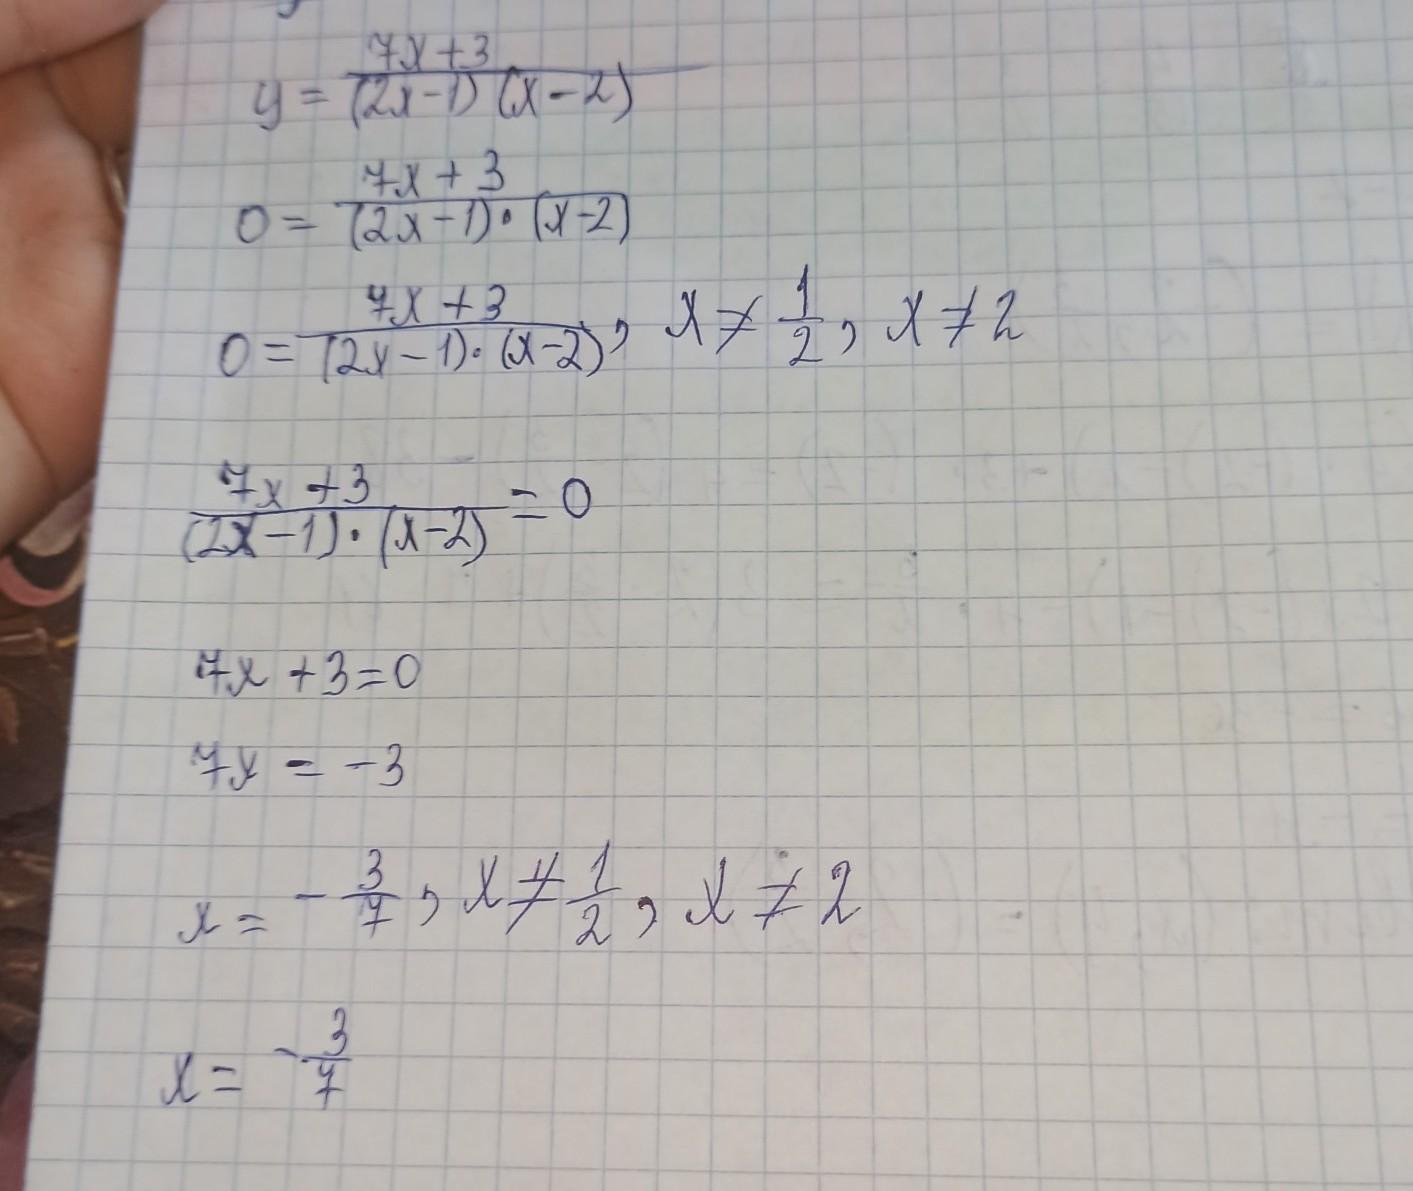 y = \frac{7x+3}{(2x-1)(x-2)}
0 = \frac{7x+3}{(2x-1)·(x-2)}
0 = \frac{7x+3}{(2x-1)·(x-2)}, x ≠ \frac{1}{2}, x ≠ 2
\frac{7x+3}{(2x-1)·(x-2)} = 0
7x + 3 = 0
7x = -3
x = -\frac{3}{7}, x ≠ \frac{1}{2}, x ≠ 2
x = -\frac{3}{7}